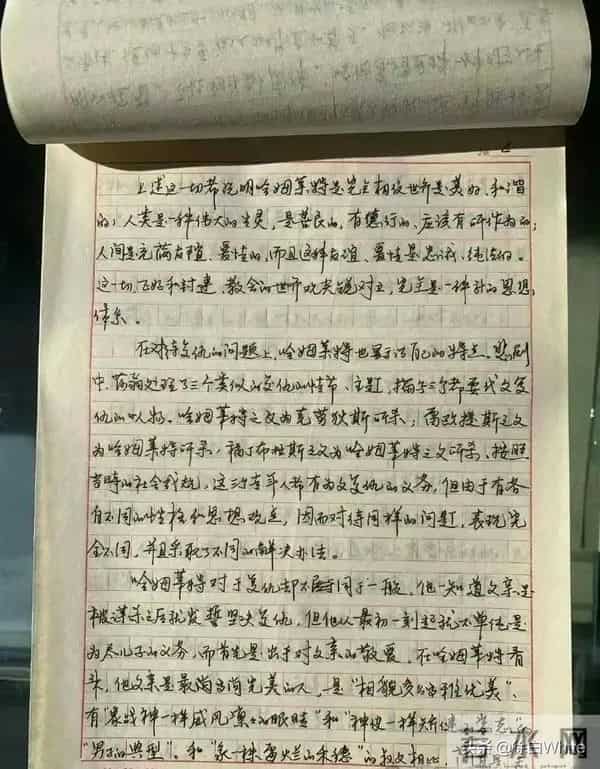 上述这一切都说明哈姆莱特是完全相信世界是美好、和谐
的；人类是一种伟大的生灵，是善良的，有德行的，应该有所作为的；
人间是充满友谊、爱情的，而且这种友谊、爱情是忠诚、纯洁的。
这一切恰好和封建、教会的世界观尖锐对立，完全是一种新的思想
体系。
在对待复仇的问题上，哈姆莱特也显示了自己的特点。悲剧
中，莎翁处理了三个类似的复仇的情节、主题，描写三个都要代父复
仇的人物。哈姆莱特之父为克劳狄斯所杀；雷欧提斯之父
为哈姆莱特所杀，福丁布拉斯之父为哈姆莱特之父所杀。按照
当时的社会成规，这三个青年人都有为父复仇的义务，但由于有各
自不同的性格和思想观点，因而对待同样的问题，表现完
全不同，并且采取了不同的解决办法。
哈姆莱特对于复仇却不同于一般，他一知道父亲是
被谋杀之后就发誓坚决复仇，但他从最初一刻起就不单纯是
为尽儿子的义务，而首先是出于对父亲的敬爱，在哈姆莱特看
来，他父亲是最高尚完美的人，是“相貌多么高雅优美”、
有“像战神一样威风凛凛的眼睛”和“神使一样矫健
“男子的典型”。和“象一株霉烂的禾穗”的叔父相比，
头条 @传白White